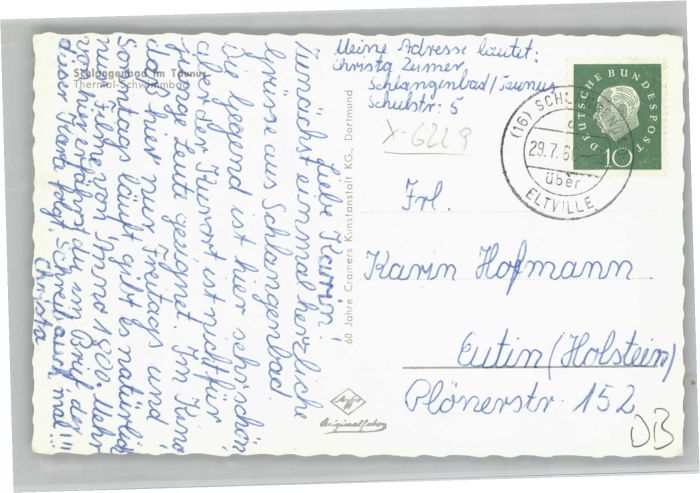 Schlangenbad im Taunus
Thermal-Schwimmbad
Liebe Karin!
Zunächst einmal herzliche
Grüsse aus Schlangenbad.
Die Gegend ist hier sehr schön
aber der Kurort ist nicht für
junge Leute geeignet. Im Kino
daß hier nur Freitags und
Sonntags läuft gibt es natürlich
nur Filme von Anno 1800. Mehr
von hier erfährst du im Brief der
dieser Karte folgt. Schreib auch mal!!!
Christa
60 Jahre Cramers Kunstanstalt KG., Dortmund
Meine Adresse lautet:
Christa Zumer
Schlangenbad/Taunus
Schulstr: 5
X-6229
DEUTSCHE BUNDESPOST
10
(16) SCHLANGENBAD
29.7.60
über
ELTVILLE
Frl.
Karin Hofmann
Eutin (Holstein)
Plönerstr. 152
Agfa
Originalfoto
DB